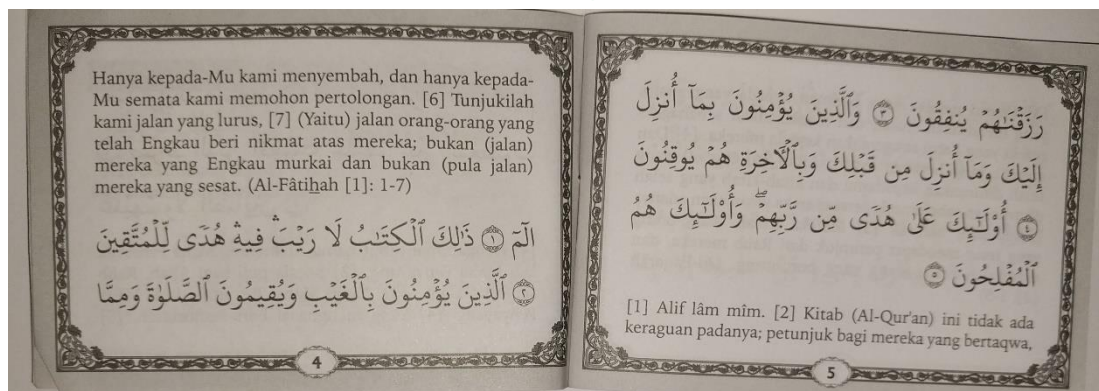 Hanya kepada-Mu kami menyembah, dan hanya kepada-
Mu semata kami memohon pertolongan. [6] Tunjukilah
kami jalan yang lurus, [7] (Yaitu) jalan orang-orang yang
telah Engkau beri nikmat atas mereka; bukan (jalan)
mereka yang Engkau murkai dan bukan (pula jalan)
mereka yang sesat. (Al-Fâtihah [1]: 1-7)
الٓمٓ ١ ذَٰلِكَ ٱلْكِتَٰبُ لَا رَيْبَ ۛ فِيهِ ۛ هُدًى لِّلْمُتَّقِينَ
٢ ٱلَّذِينَ يُؤْمِنُونَ بِٱلْغَيْبِ وَيُقِيمُونَ ٱلصَّلَوٰةَ وَمِمَّا
4
رَزَقْنَٰهُمْ يُنفِقُونَ ٣ وَٱلَّذِينَ يُؤْمِنُونَ بِمَآ أُنزِلَ
إِلَيْكَ وَمَآ أُنزِلَ مِن قَبْلِكَ وَبِٱلْأَخِرَةِ هُمْ يُوقِنُونَ
٤ أُو۟لَٰٓئِكَ عَلَىٰ هُدًى مِّن رَّبِّهِمْ ۖ وَأُو۟لَٰٓئِكَ هُمُ
ٱلْمُفْلِحُونَ ٥
[1] Alif lâm mîm. [2] Kitab (Al-Qur'an) ini tidak ada
keraguan padanya; petunjuk bagi mereka yang bertaqwa,
5